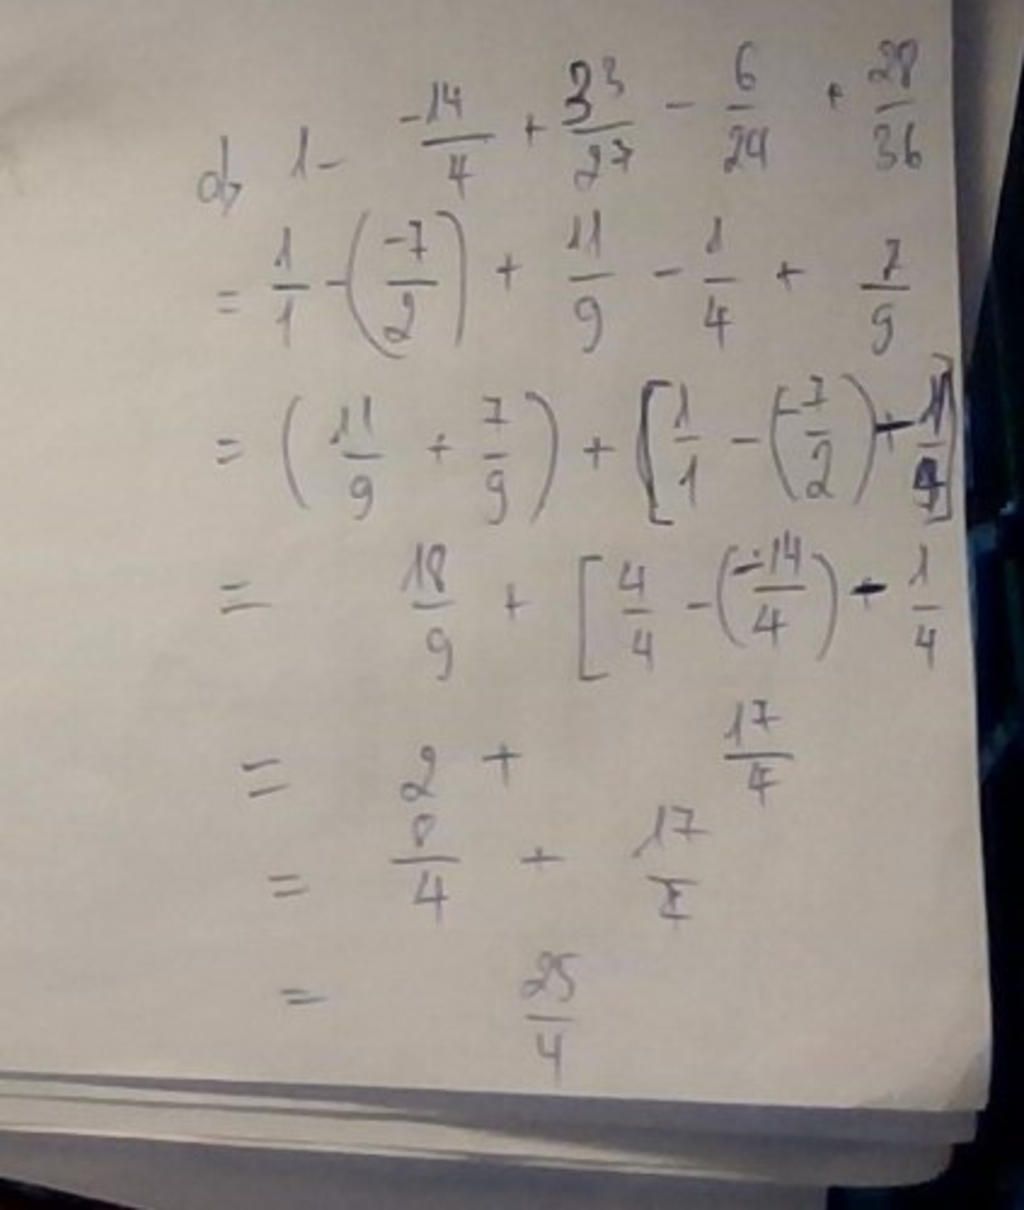 d, 1 - \frac{-14}{4} + \frac{33}{27} - \frac{6}{24} + \frac{28}{36}
= \frac{1}{1} - \left(\frac{-7}{2}\right) + \frac{11}{9} - \frac{1}{4} + \frac{7}{9}
= \left(\frac{11}{9} + \frac{7}{9}\right) + \left[\frac{1}{1} - \left(\frac{-7}{2}\right) - \frac{1}{4}\right]
= \frac{18}{9} + \left[\frac{4}{4} - \left(\frac{-14}{4}\right) - \frac{1}{4}
= 2 + \frac{17}{4}
= \frac{8}{4} + \frac{17}{4}
= \frac{25}{4}